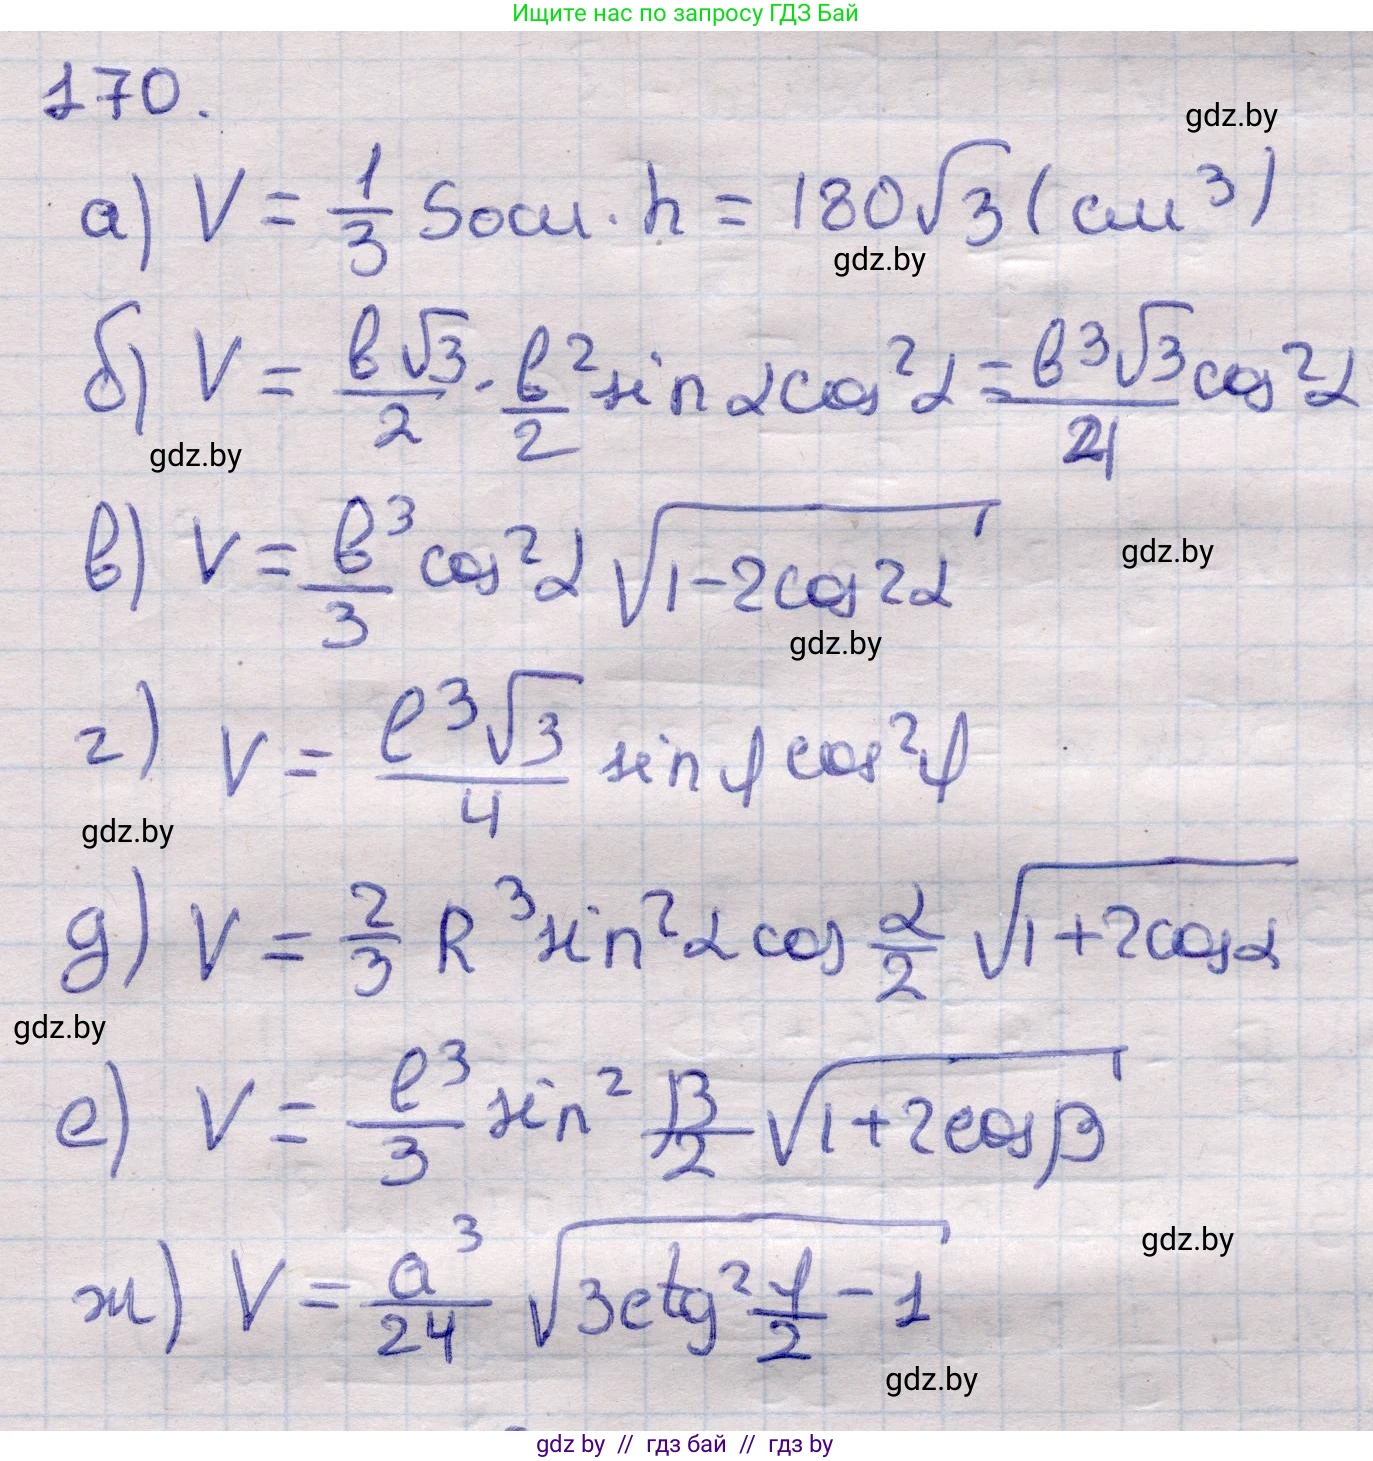 Ищите нас по запросу ГДЗ Бай
170.
gdz.by
а) V = 1/3 Sосн · h = 180√3 (см³)
gdz.by
б) V = в√3/2 · в²/2 sin α cos² α = в³√3/4 cos² α
gdz.by
в) V = в³/3 cos² α √(1-2cos 2α)
gdz.by
gdz.by
г) V = ℓ³√3/4 sin φ cos² φ
gdz.by
д) V = 2/3 R³ sin² α cos α/2 √(1+2cos α)
gdz.by
е) V = ℓ³/3 sin² β/2 √(1+2cos β)
gdz.by
ж) V = a³/24 √(3ctg² φ/2 - 1)
gdz.by
gdz by // гдз бай // гдз by